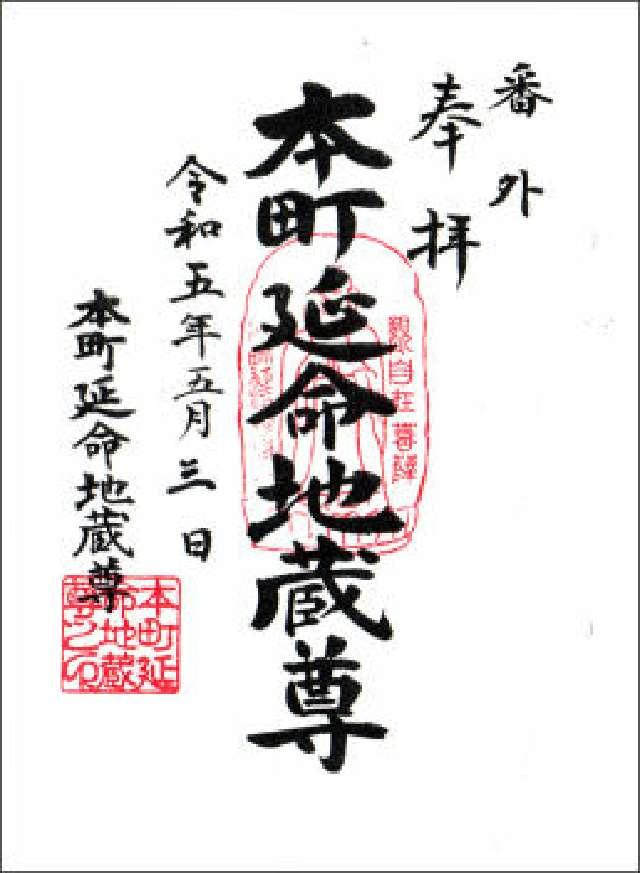 番外
奉拝
本町延命地蔵尊
令和五年五月三日
本町延命地蔵尊
本町延
命地蔵
尊之印